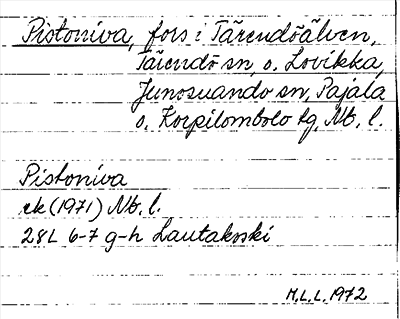 Pistoniva, fors i Tärendöälven,
Tärendö sn, o. Lovikka,
Junosuando sn, Pajala
o. Korpilombolo tg, Nb. l.
Pistoniva
ek (1971) Nb. l.
28L 6-7 g-h Lautakoski
M.L.L. 1972